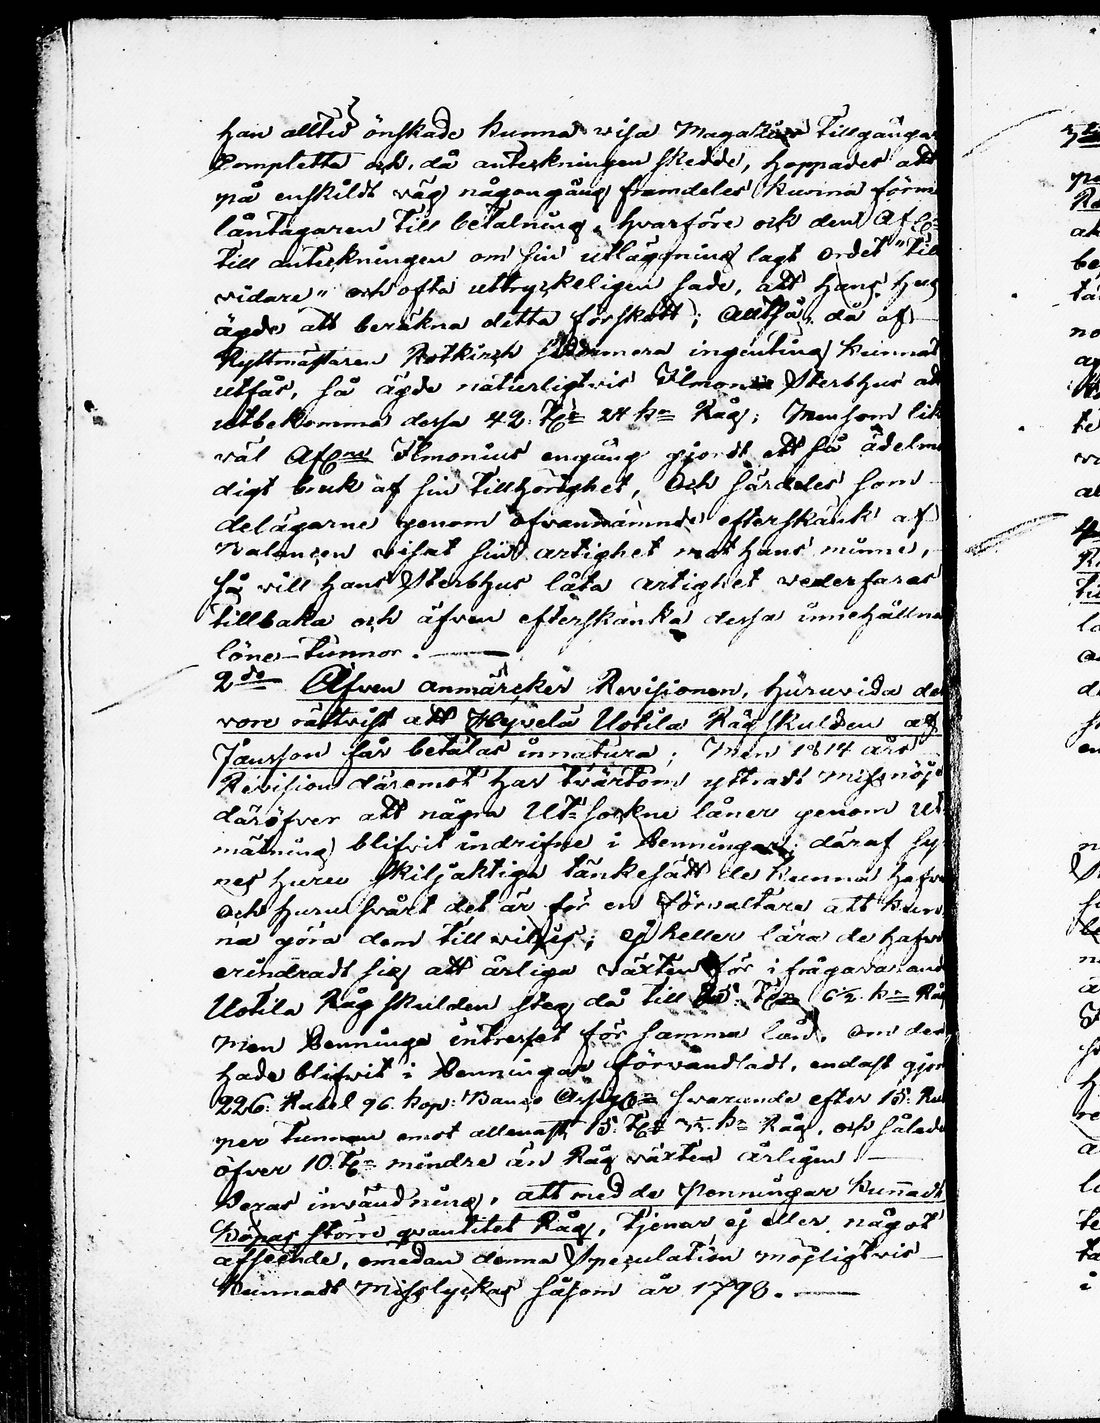 han alltid önskade kunna visa Magasins tillgångar
Completta och, då anteckningen skedde, hoppades att
på enskildt väg någongång framdeles kunna förm
låntagaren till betalning, hvarföre och den Afl:
till anteckningen om sin utläggning lagt ordet "till
vidare" och ofta uttryckeligen sade, att hans hus
ägde att beräkna detta förskott; Alltså, då af
Ryttmästaren Rotkirch sedermera ingenting kunnat
utfås, så ägde naturligtvis Ilmonii Sterbhus att
utbekomma dessa 42 T:r 24 k:r Råg; Men som lik
väl Afl:ne Ilmonius engång gjordt ett så ädelmo
digt bruk af sin tillhörighet, Och särdeles som
delägarne genom ofvannämnde efterskänk af
Balancen visat sin artighet mot hans minne,
så vill hans Sterbhus låta artighet vederfaras
tillbaka och äfven efterskänka dessa innehållna
löne-tunnor.
2:do Äfven anmärcker Revisionen, huruvida det
vore rättvist att Heyvelä Uotila Rågskulden af
Jansson får betalas innatura; Men 1814 års
Revision däremot har tvärtom yttradt missnöje
däröfver att några Ut-sockne låner genom ut
mätning blifvit indrifne i Penningar; däraf sy
nes huru skiljaktiga tänkesätt de kunna hafva
och huru svårt det är för en förvaltare att kun
na göra dem till viljes; ej heller lära de hafva
erindradt sig att årliga växten för i frågavarand
Uotila Rågskulden steg då till 25 T:r 6½ k:r Råg
Men Penninge intresset för samma lån, om det
hade blifvit i Penningar förvandladt, endast gjort
226 Rubel 96 kop: Banco Assign: svarande efter 15 Ru
per tunnan emot allenast 15 T:r k:r Råg, och således
öfver 10 T:r mindre än Råg växten årligen.
Deras invändning, att med de Penningar kunnadt
köpas större quantitet Råg, tjenar ej eller något
afseende, emedan denna Speculation möjligtvis
kunnadt Misslyckas såsom år 1798.